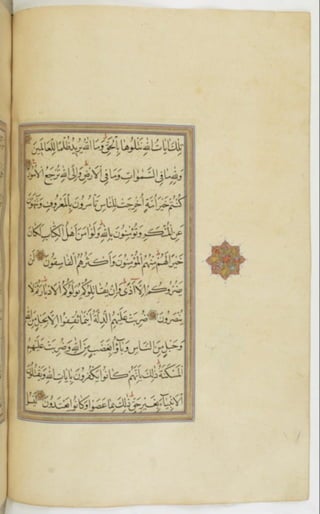 تلك ايات الله نتلوها بالحق وما الله يريد ظلما للعالمين
ولله ما في السموات وما في الارض والى الله ترجع الامور
كنتم خير امة اخرجت للناس تأمرون بالمعروف وتنهون
عن المنكر وتؤمنون بالله ولو امن اهل الكتاب لكان
خيرا لهم منهم المؤمنون واكثرهم الفاسقون لن
يضروكم الا اذى وان يقاتلوكم يولوكم الادبار ثم لا
ينصرون ضربت عليهم الذلة اينما ثقفوا الا بحبل من الله
وحبل من الناس وباؤا بغضب من الله وضربت عليهم
المسكنة ذلك بانهم كانوا يكفرون بايات الله ويقتلون
الانبياء بغير حق ذلك بما عصوا وكانوا يعتدون